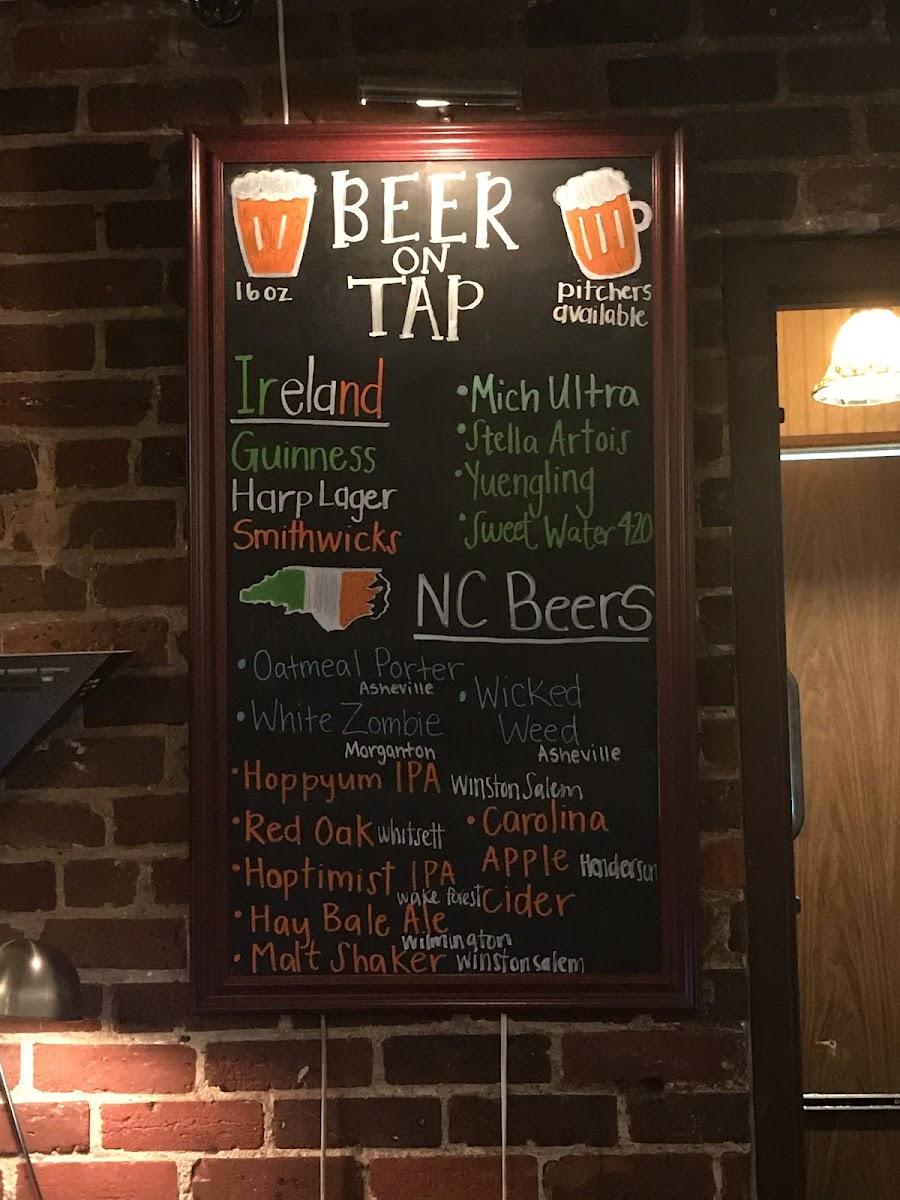 BEER
ON
TAP
16oz
pitchers
available
Ireland
Guinness
Harp Lager
Smithwicks
•Mich Ultra
•Stella Artois
•Yuengling
•Sweet Water 420
NC Beers
•Oatmeal Porter
Asheville
•White Zombie
Morganton
•Hoppyum IPA Winston Salem
•Red Oak whitsett
•Hoptimist IPA
wake forest
•Hay Bale Ale
wilmington
•Malt Shaker winston salem
•Wicked
Weed
Asheville
•Carolina
Apple Henderson
Cider